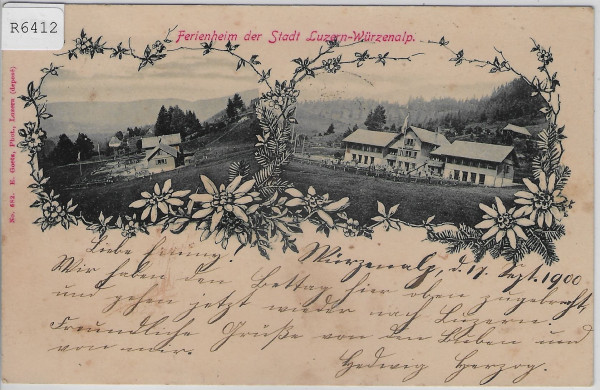 R6412
Ferienheim der Stadt Luzern-Würzenalp.
No. 682. E. Goetz, Phot., Luzern (deposé)
Würzenalp, d. 17. Sept. 1900
Liebe
Wir haben den Bettag hier oben zugebracht,
und gehen jetzt wieder nach Luzern.
Freundliche Grüße von den Lieben und
von mir.
Hedwig Herzog.